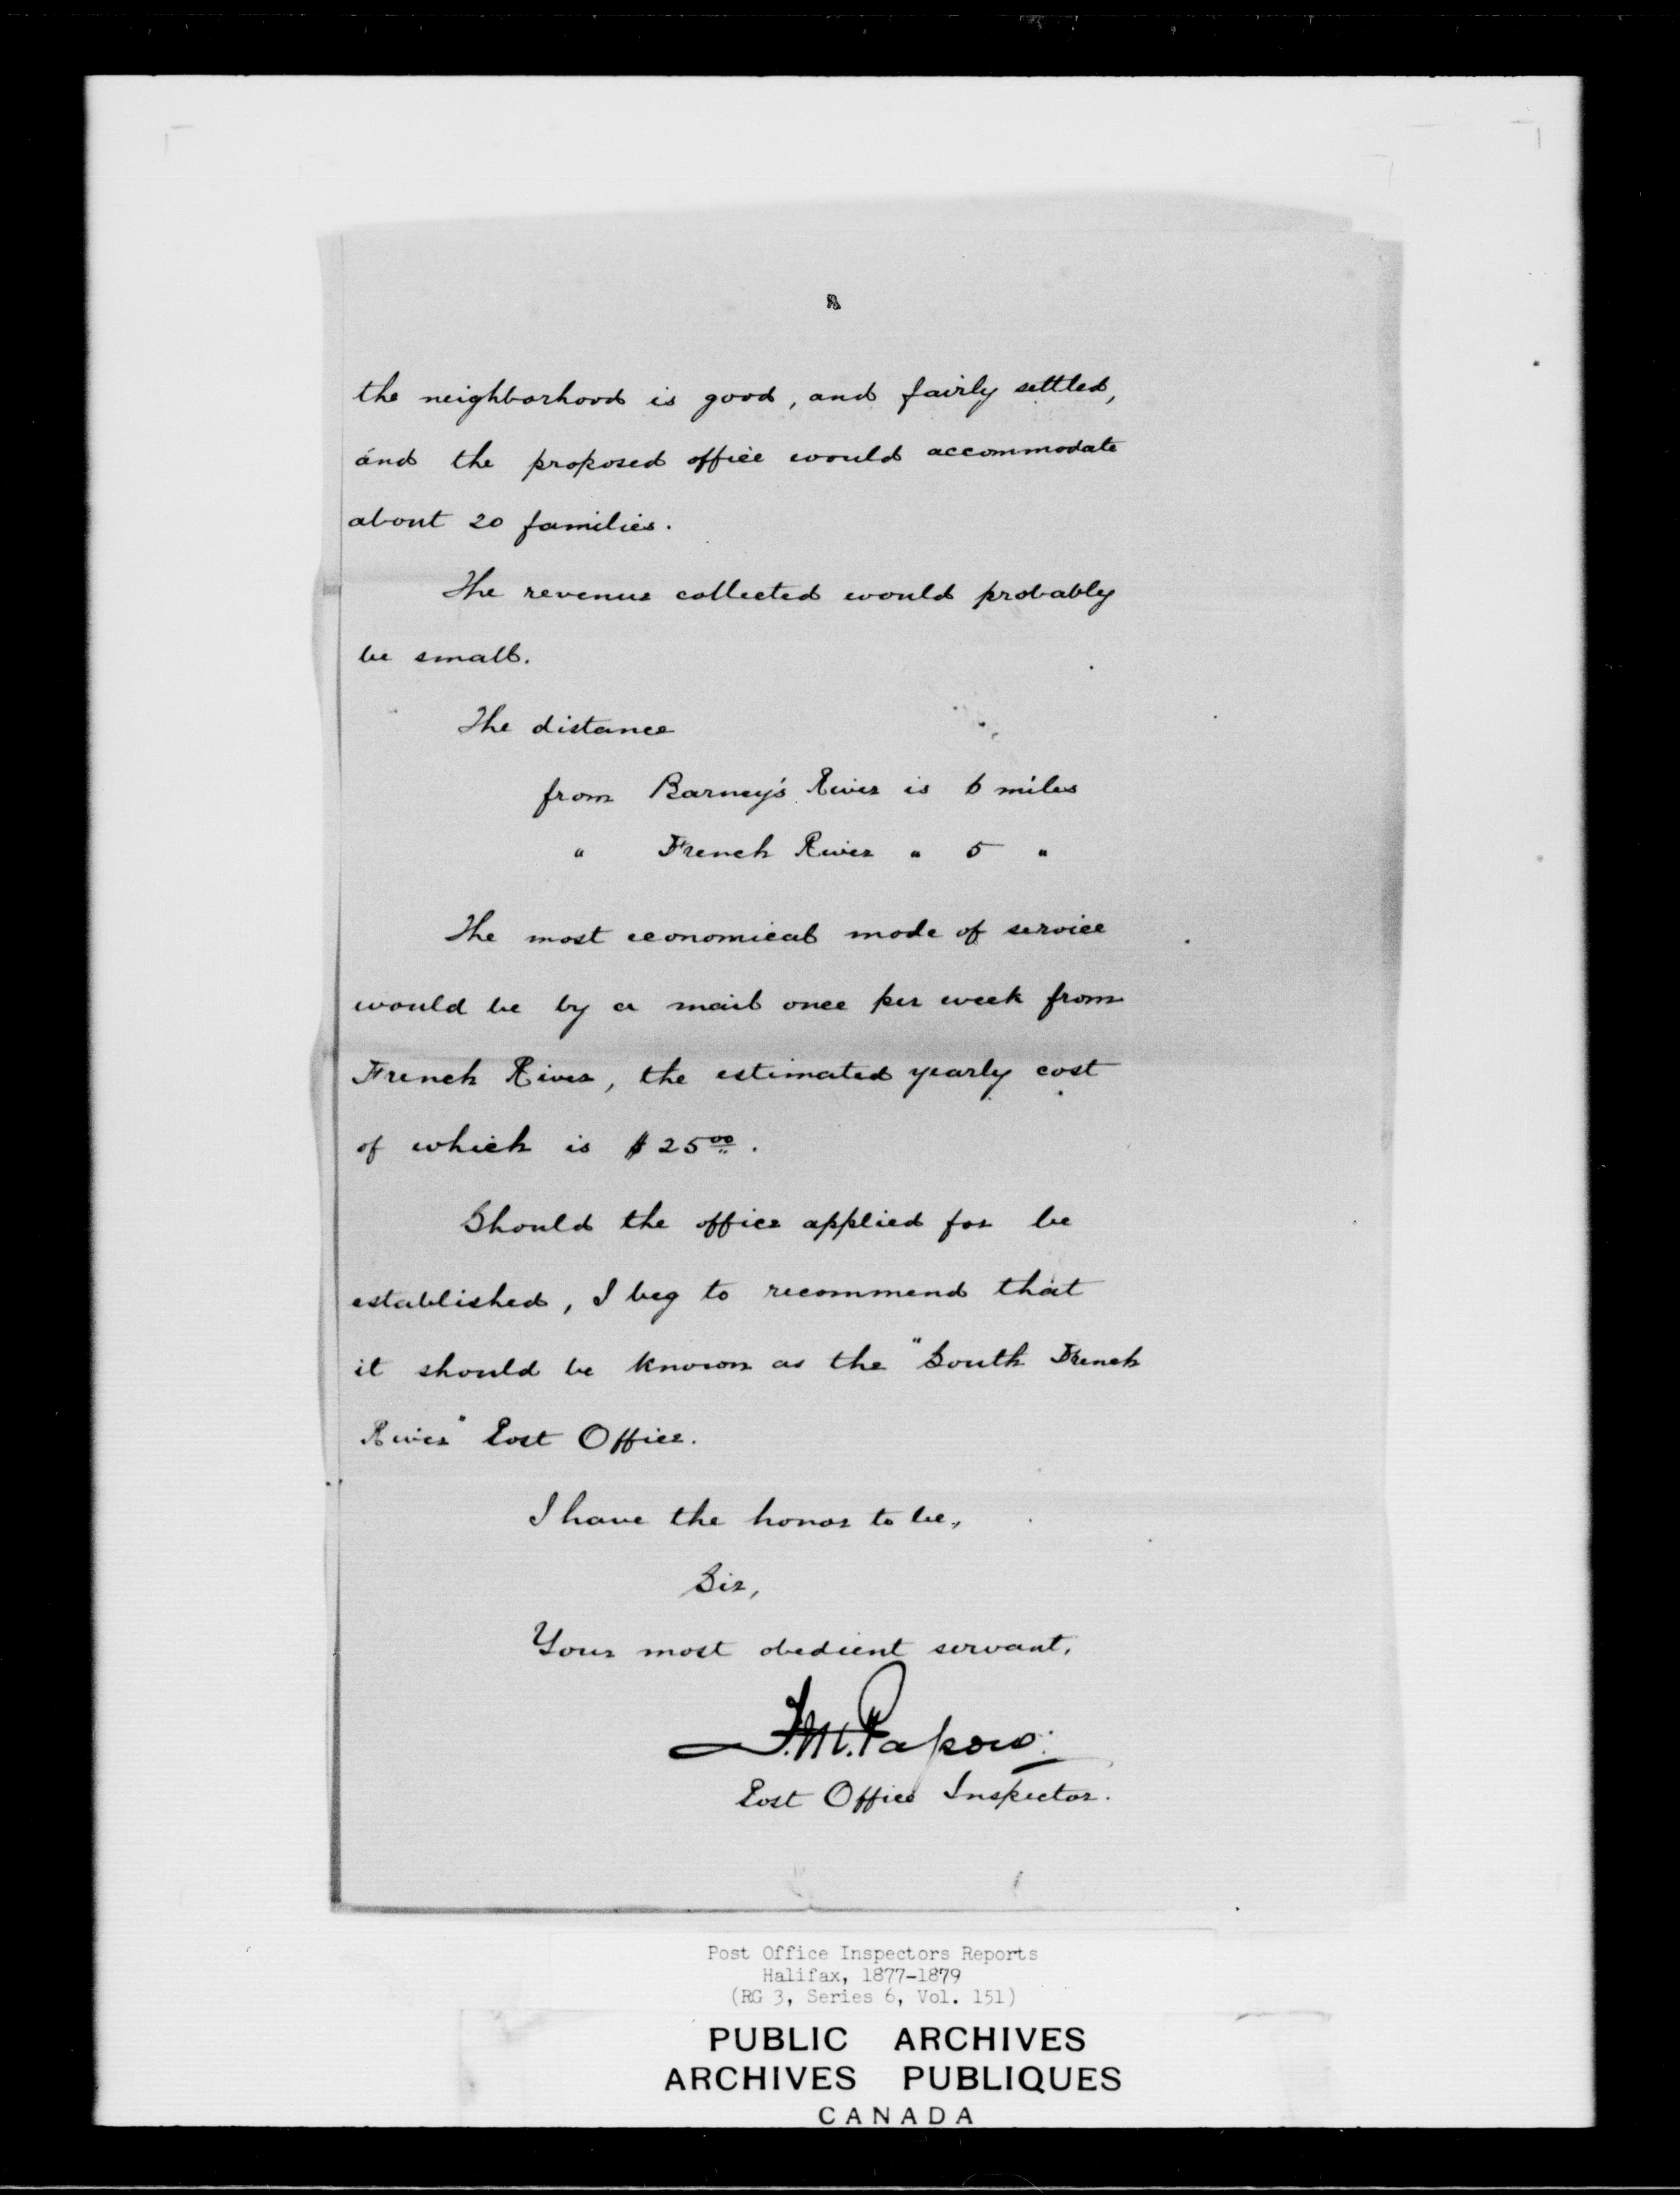 the neighborhood is good, and fairly settled,
and the proposed office would accommodate
about 20 families.
The revenue collected would probably
be small.
The distance
from Barney's River is 6 miles
" French River " 5 "
The most economical mode of service
would be by a mail once per week from
French River, the estimated yearly cost
of which is $25 00.
Should the office applied for be
established, I beg to recommend that
it should be known as the "South French
River" Post Office.
I have the honor to be,
Sir,
Your most obedient servant,
F.M. Passow.
Post Office Inspector.
Post Office Inspectors Reports
Halifax, 1877-1879
(RG 3, Series 6, Vol. 151)
PUBLIC ARCHIVES
ARCHIVES PUBLIQUES
CANADA